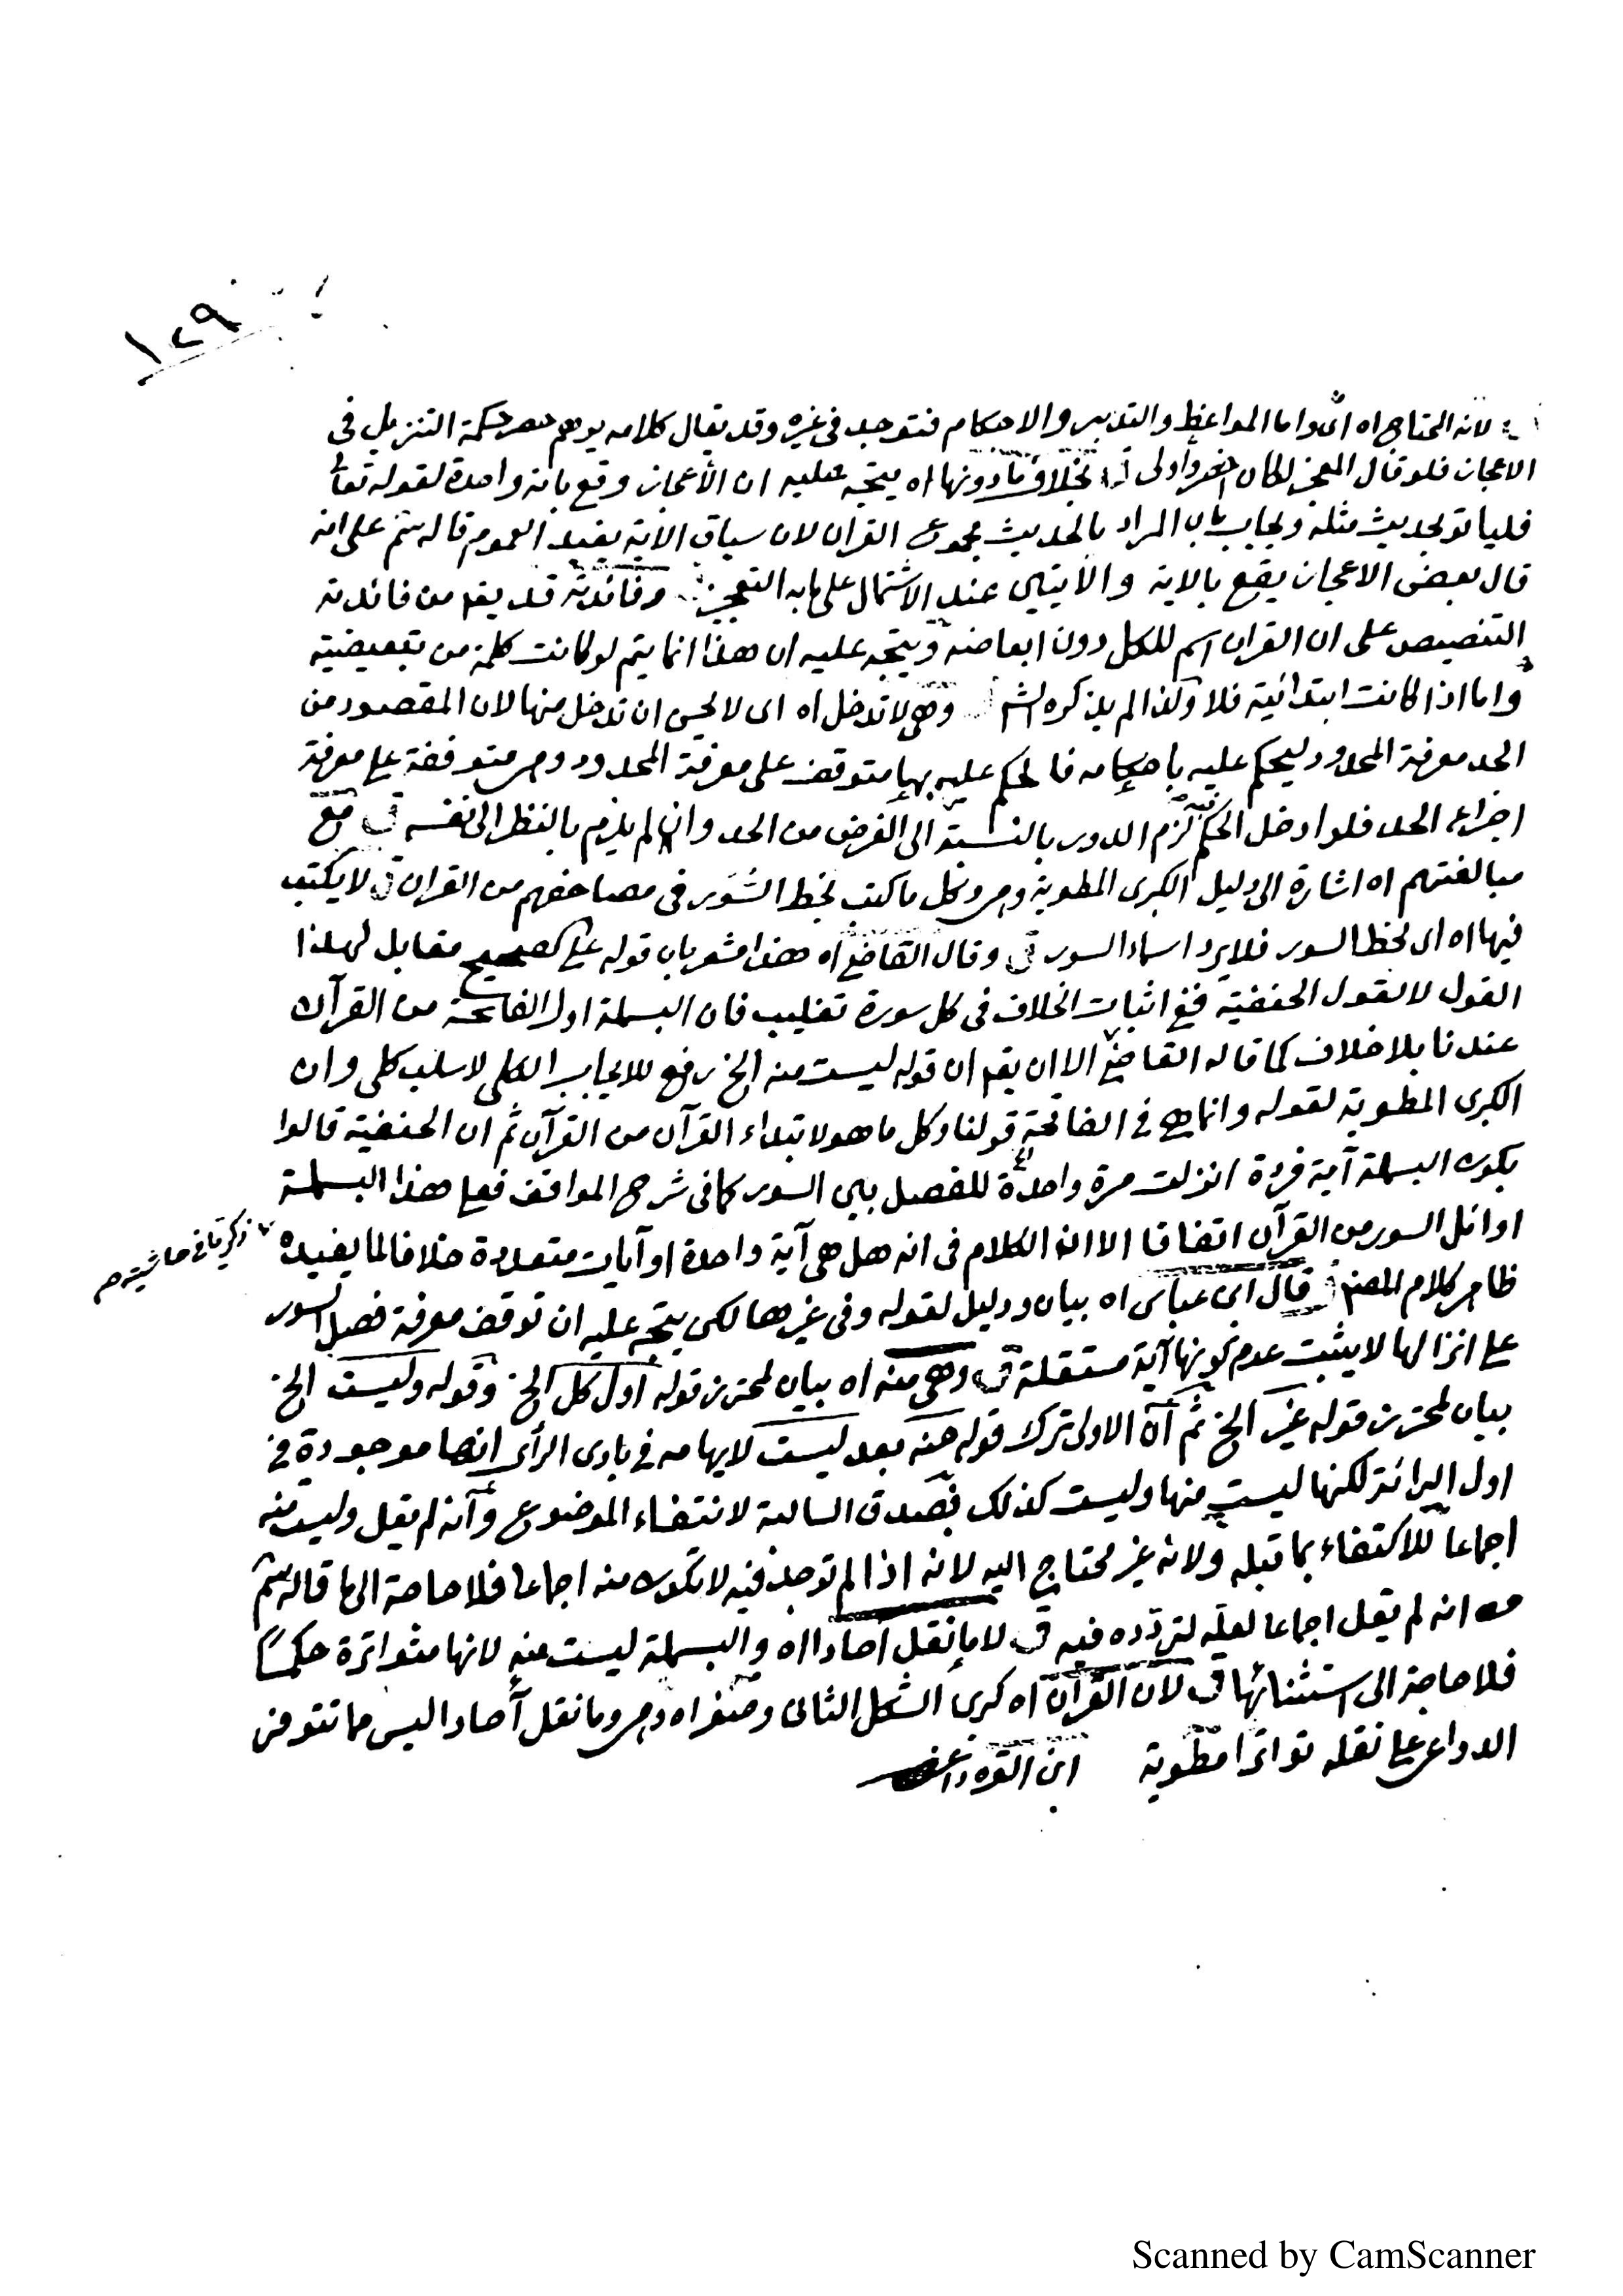 ١٢٩
لانه المحتاج اه اى واما المواعظ والتدبير والاحكام فتوجد فى غيره وقد يقال كلامه يوهم حصر حكمة التنزيل فى
الاعجاز فلو قال المعجز لكان اخصر واولى بخلاف ما دونها اه يتجه عليه ان الأعجاز وقع باية واحدة لقوله تعالى
فلياتو بحديث مثله ويجاب بان المراد بالحديث مجموع القران لان سياق الاية يفيد العموم قاله شم على انه
قال بعض الاعجاز يقع بالاية والآيتين عند الاشتمال على ما به التعجيز وفائدته قد يقع من فائدته
التنصيص على ان القران اسم للكل دون ابعاضه ويتجه عليه ان هذا انما يتم لو كانت كلمة من تبعيضية
واما اذا كانت ابتدائية فلا ولذا لم يذكره الشم وهى لا تدخل اه اى لا يحسن ان تدخل منها لان المقصود من
الحد معرفة المحدود ليحكم عليه باحكامه فالحكم عليه بها متوقف على معرفة المحدود وهى متوقفة على معرفة
اجزاء الحد فلو ادخل الحكم فيه لزم الدور بالنسبة الى الغرض من الحد وان لم يلزم بالنظر الى نفسه ق مع
مبالغتهم اه اشارة الى دليل الكبرى المطوية وهى وكل ما كتب بخط السُّوَر فى مصاحفهم من القران ق لا يكتب
فيها اه اى بخط السور فلا يرد اسماء السور ق وقال القاضى اه هذا مشعر بان قوله على الصحيح مقابل لهذا
القول لا لقول الحنفية ففى اثبات الخلاف فى كل سورة تغليب فان البسملة اول الفاتحة من القرآن
عندنا بلا خلاف كما قاله القاضى الا ان يقم ان قوله ليست منه الخ رفع للايجاب الكلى لا سلب كلى وان
الكبرى المطوية لقوله وانما هى فى الفاتحة قولنا وكل ما هو لابتداء القرآن من القرآن ثم ان الحنفية قالوا
بكون البسملة آية فردة انزلت مرة واحدة للفصل بين السور كما فى شرح المواقف فعلى هذا البسملة
اوائل السور من القرآن اتفاقا الا ان الكلام فى انه هل هى آية واحدة او آيات متعددة خلافا لما يفيده
ذكرنا فى حاشيته م
ظاهر كلام المصنف قال ابن عباس اه بيان ودليل لقوله وفى غيرها لكن يتجه عليه ان توقف معرفة فصل السور
على انزالها لا يثبت عدم كونها آية مستقلة ق وهى منه اه بيان لمحترز قوله اول كل الخ وقوله وليست الخ
بيان لمحترز قوله غير الخ ثم ان الاولى ترك قوله منه بعد ليست لايهامه فى بادى الرأى انها موجودة فى
اول البرائة لكنها ليست منها وليست كذلك فصدق السالبة لانتفاء الموضوع وانه لم يقل وليست منه
اجماعاً للاكتفاء بما قبله ولانه غير محتاج اليه لانه اذا لم توجد فيه لا تكون منه اجماعا فلا حاجة الى ما قاله شم
من انه لم يقل اجماعا لعله لتردّده فيه ق لا ما نقل آحادا اه والبسملة ليست منه لانها متواترة حكمًا
فلا حاجة الى استثنائها ق لان القرآن اه كبرى الشكل الثانى وصغراه وهى وما نقل آحادا ليس مما تتوفر
الدواعى على نقله تواترا مطوية ابن القره داغى
Scanned by CamScanner